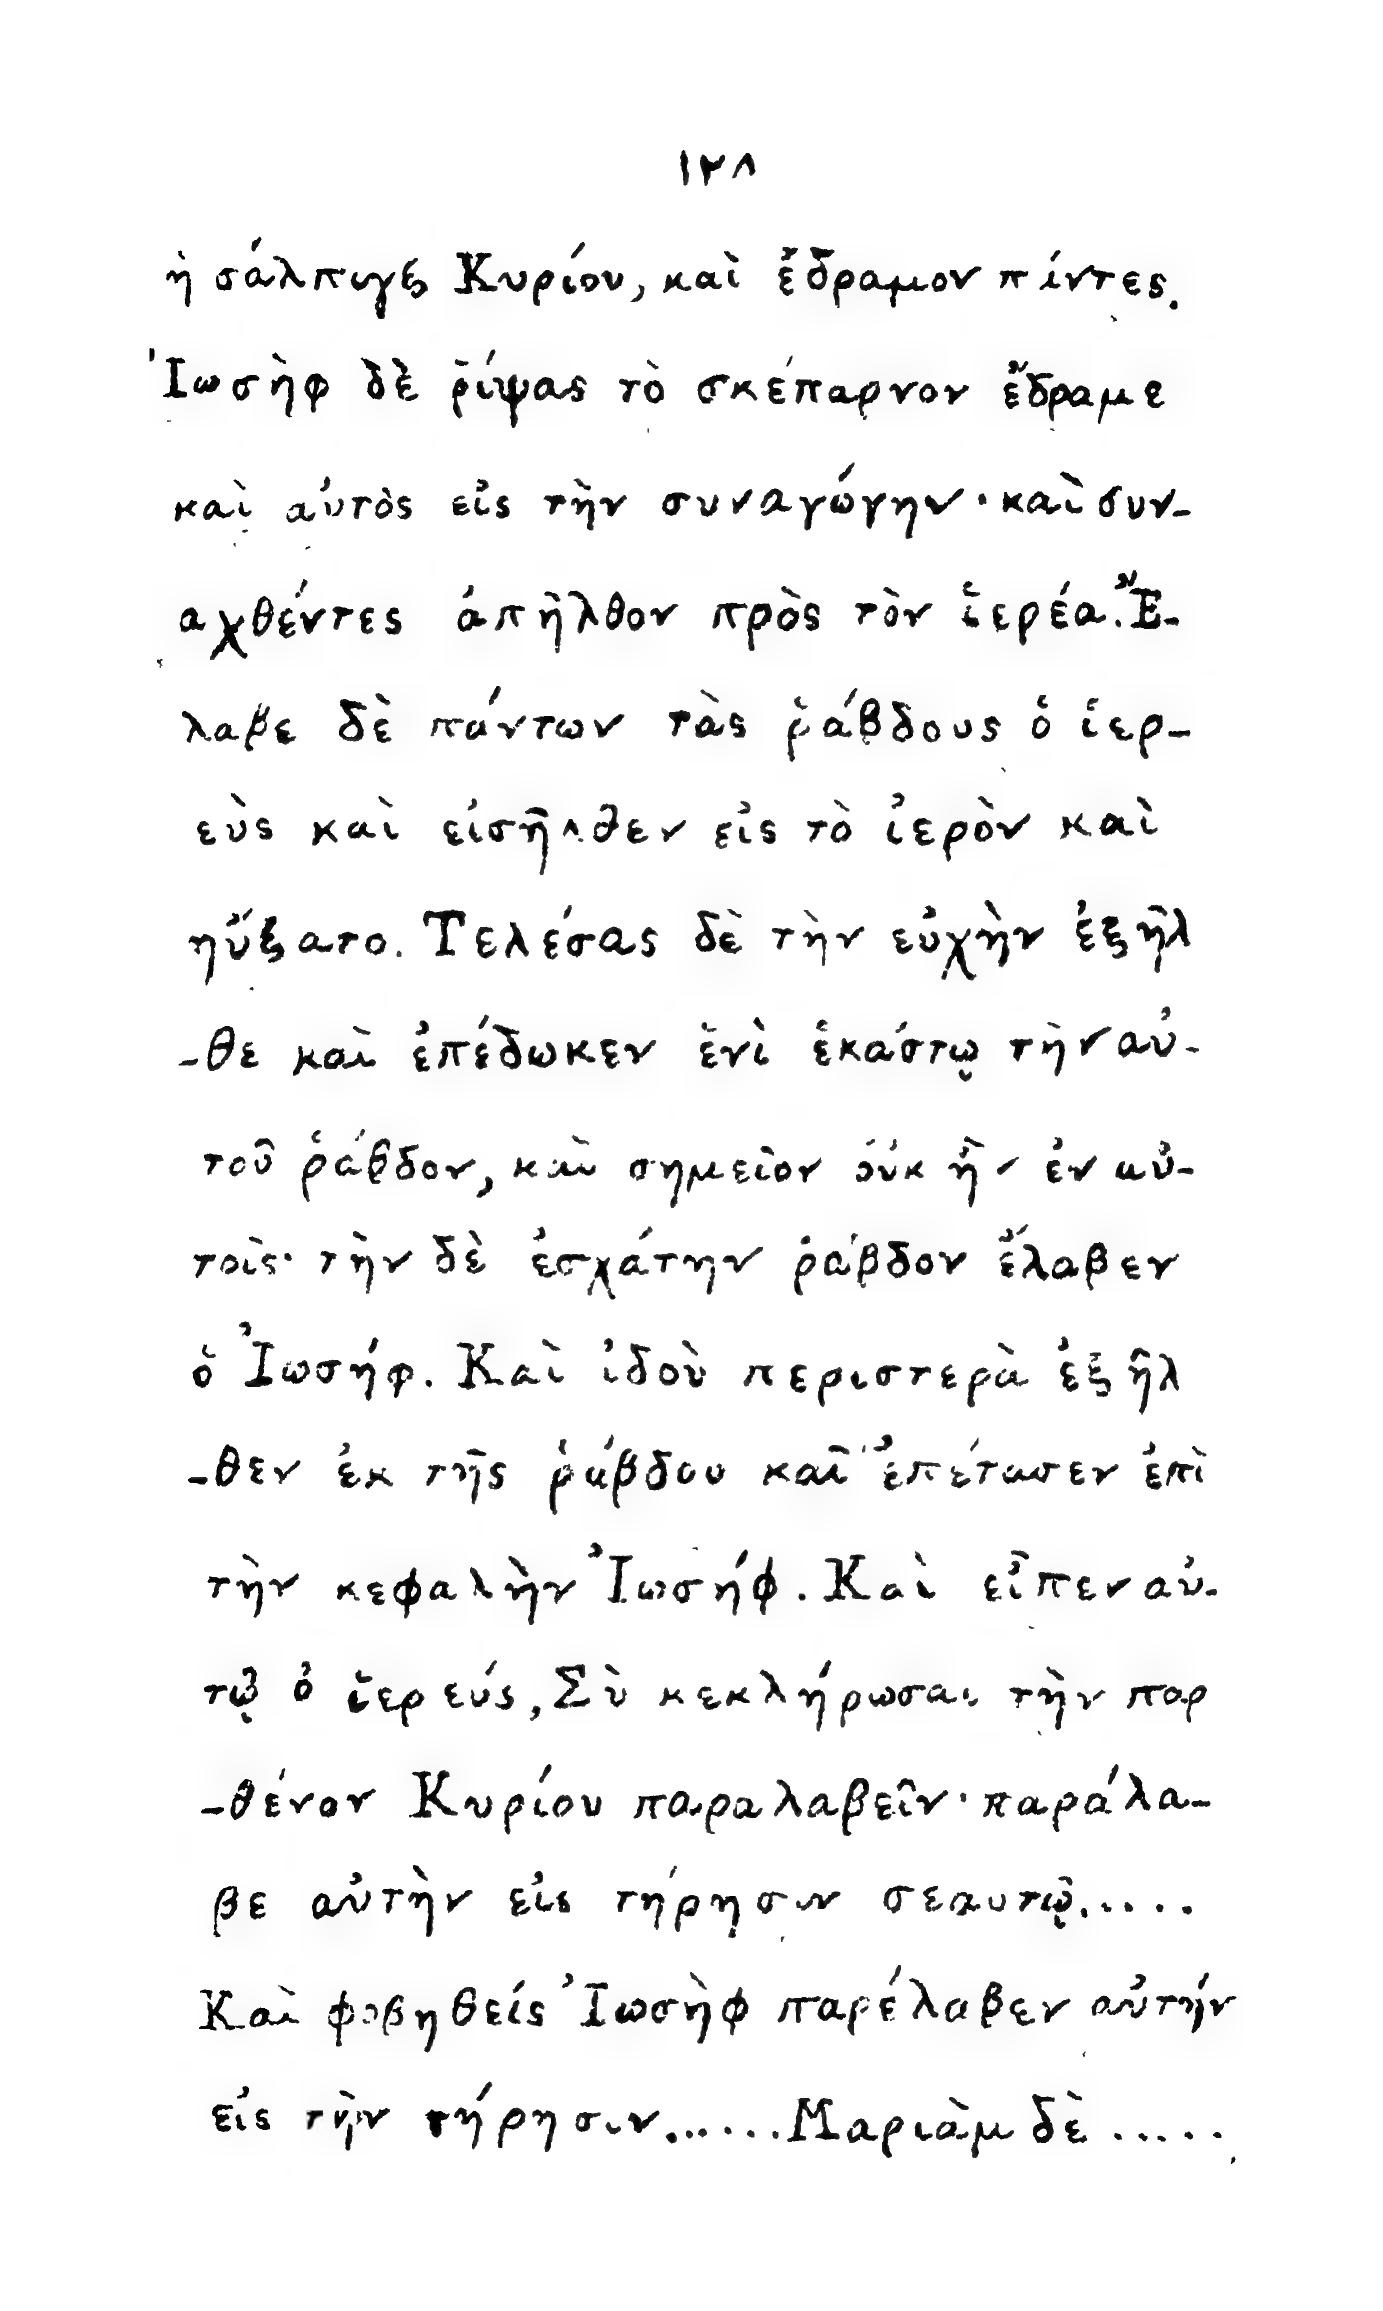 ١٢٨
ἡ σάλπιγξ Κυρίου, καὶ ἔδραμον πάντες.
Ἰωσὴφ δὲ ῥίψας τὸ σκέπαρνον ἔδραμε
καὶ αὐτὸς εἰς τὴν συναγώγην· καὶ συν-
αχθέντες ἀπῆλθον πρὸς τὸν ἱερέα. Ἔ-
λαβε δὲ πάντων τὰς ῥάβδους ὁ ἱερ-
εὺς καὶ εἰσῆλθεν εἰς τὸ ἱερὸν καὶ
ηὔξατο. Τελέσας δὲ τὴν εὐχὴν ἐξῆλ
-θε καὶ ἐπέδωκεν ἑνὶ ἑκάστῳ τὴν αὐ-
τοῦ ῥάβδον, καὶ σημεῖον οὐκ ἦν ἐν αὐ-
τοῖς· τὴν δὲ ἐσχάτην ῥάβδον ἔλαβεν
ὁ Ἰωσήφ. Καὶ ἰδοὺ περιστερὰ ἐξῆλ
-θεν ἐκ τῆς ῥάβδου καὶ ἐπέτασεν ἐπὶ
τὴν κεφαλὴν Ἰωσήφ. Καὶ εἶπεν αὐ-
τῷ ὁ ἱερεύς, Σὺ κεκλήρωσαι τὴν παρ
-θένον Κυρίου παραλαβεῖν· παράλα-
βε αὐτὴν εἰς τήρησιν σεαυτῷ.....
Καὶ φοβηθείς Ἰωσὴφ παρέλαβεν αὐτήν
εἰς τὴν τήρησιν......Μαριὰμ δὲ .....